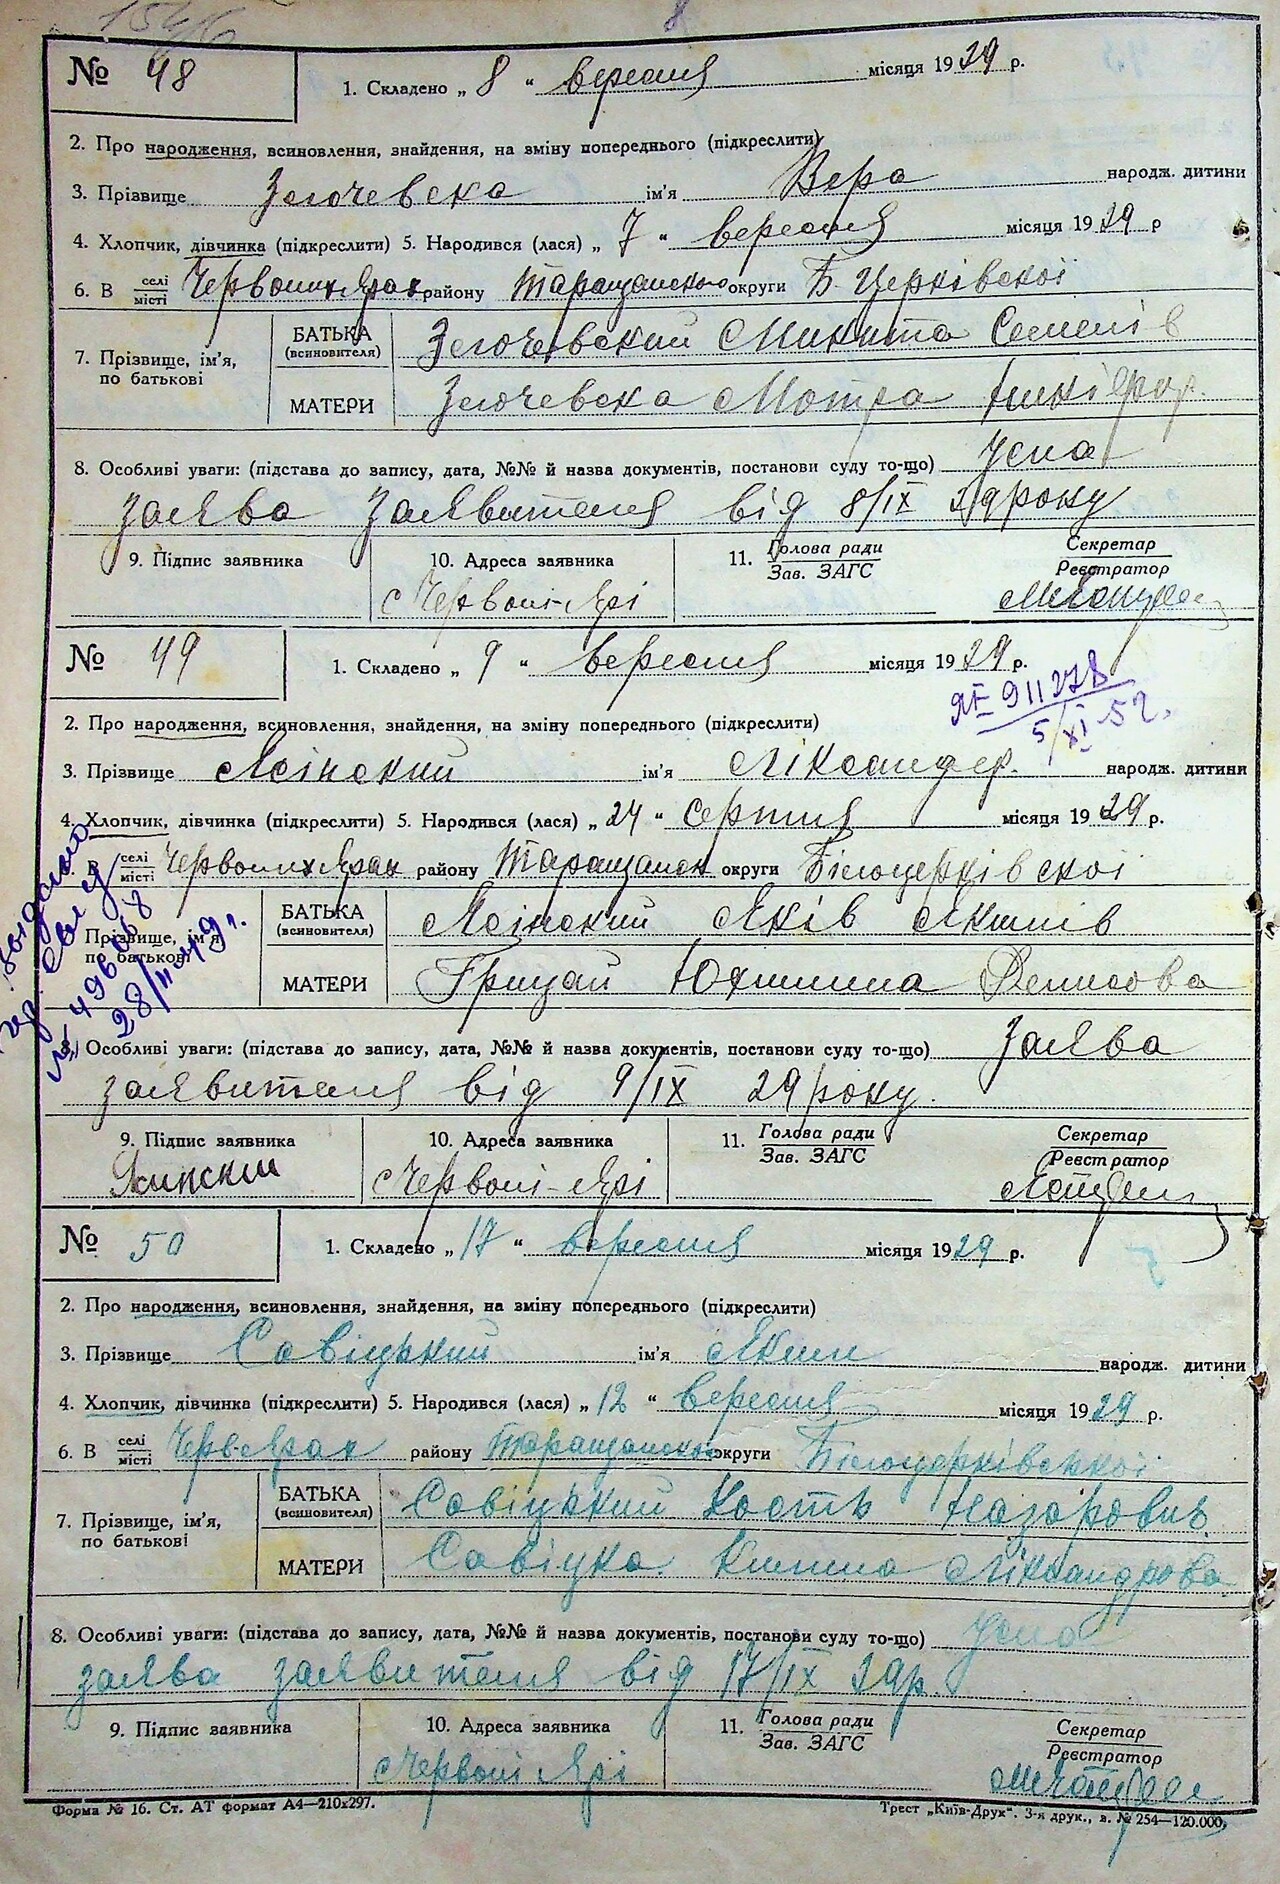 № 48
1. Складено „ 8 “ вересня місяця 1929 р.
2. Про народження, всиновлення, знайдення, на зміну попереднього (підкреслити)
3. Прізвище ім'я Вера народж. дитини
4. Хлопчик, дівчинка (підкреслити) 5. Народився (лася) „ 7 “ вересня місяця 1929 р
6. В селі/місті Червоних Ярах району Таращансько округи Б-Церківської
7. Прізвище, ім'я, по батькові
БАТЬКА (всиновителя) Микита Семенів
МАТЕРИ Мотра
8. Особливі уваги: (підстава до запису, дата, №№ й назва документів, постанови суду то-що) Усна
заява заявителя від 8/IX 29 року
9. Підпис заявника 10. Адреса заявника 11. Голова ради / Зав. ЗАГС Секретар / Реєстратор
с Червоні-Ярі
№ 49
1. Складено „ 9 “ вересня місяця 1929 р.
ЯЕ 911278
5/XI-52.
2. Про народження, всиновлення, знайдення, на зміну попереднього (підкреслити)
3. Прізвище Ясінский ім'я Ліксандер. народж. дитини
4. Хлопчик, дівчинка (підкреслити) 5. Народився (лася) „ 24 “ серпня місяця 1929 р.
В селі/місті Червоних Ярах району Таращанск округи Білоцерківскої
Прізвище, ім'я по батькові
БАТЬКА (всиновителя) Ясінский Яків Якимів
МАТЕРИ Грицай Юхимина Денисова
№ 496068
28/II 49 г.
8. Особливі уваги: (підстава до запису, дата, №№ й назва документів, постанови суду то-що) Заява
заявителя від 9/IX 29 року.
9. Підпис заявника 10. Адреса заявника 11. Голова ради / Зав. ЗАГС Секретар / Реєстратор
с Червоні-Ярі
№ 50
1. Складено „ 17 “ вересня місяця 1929 р.
2. Про народження, всиновлення, знайдення, на зміну попереднього (підкреслити)
3. Прізвище Савіцький ім'я Яким народж. дитини
4. Хлопчик, дівчинка (підкреслити) 5. Народився (лася) „ 12 “ вересня місяця 1929 р.
6. В селі/місті Черв-Ярах району Таращансько округи Білоцерківської
7. Прізвище, ім'я, по батькові
БАТЬКА (всиновителя) Савіцький Кость Назарович
МАТЕРИ Савіцка Ліксандрова
8. Особливі уваги: (підстава до запису, дата, №№ й назва документів, постанови суду то-що) Усна
заява заявителя від 17/IX 29 р.
9. Підпис заявника 10. Адреса заявника 11. Голова ради / Зав. ЗАГС Секретар / Реєстратор
с Червоні Ярі
Форма № 16. Ст. АТ формат А4—210х297. Трест „Київ-Друк“. 3-я друк., в. № 254—120.000,